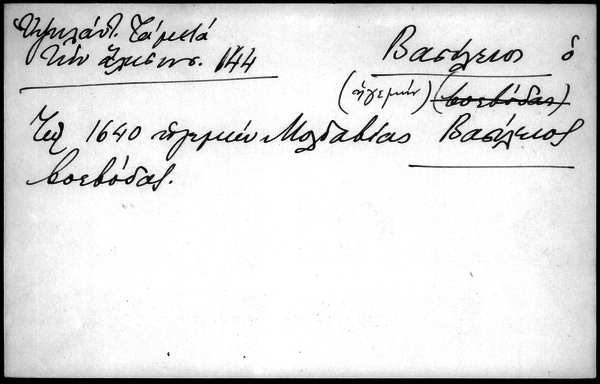 Τὰ μετὰ
τὴν ἅλωσιν. 144
Βασίλειος ὁ
(ἡγεμών) (βοεβόδας)
Τῷ 1640 ἡγεμὼν Μολδαβίας Βασίλειος
βοεβόδας.